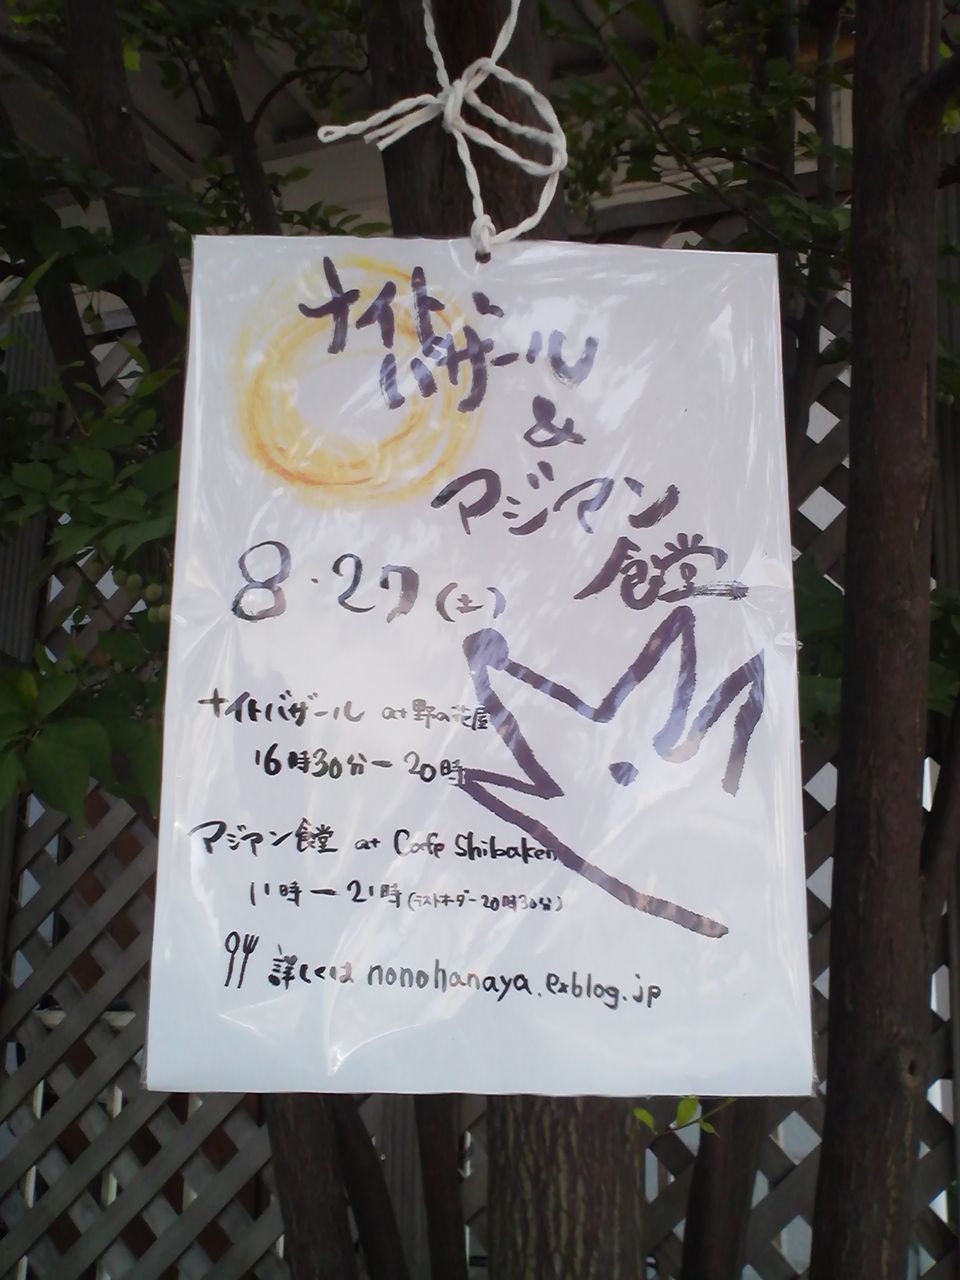 ナイト
バザール
&
アジアン
食堂
8.27(土)
ナイトバザール at 野の花屋
16時30分ー20時
アジアン食堂 at Cafe Shibaken
11時ー21時(ラストオーダー20時30分)
詳しくは nonohanaya.exblog.jp